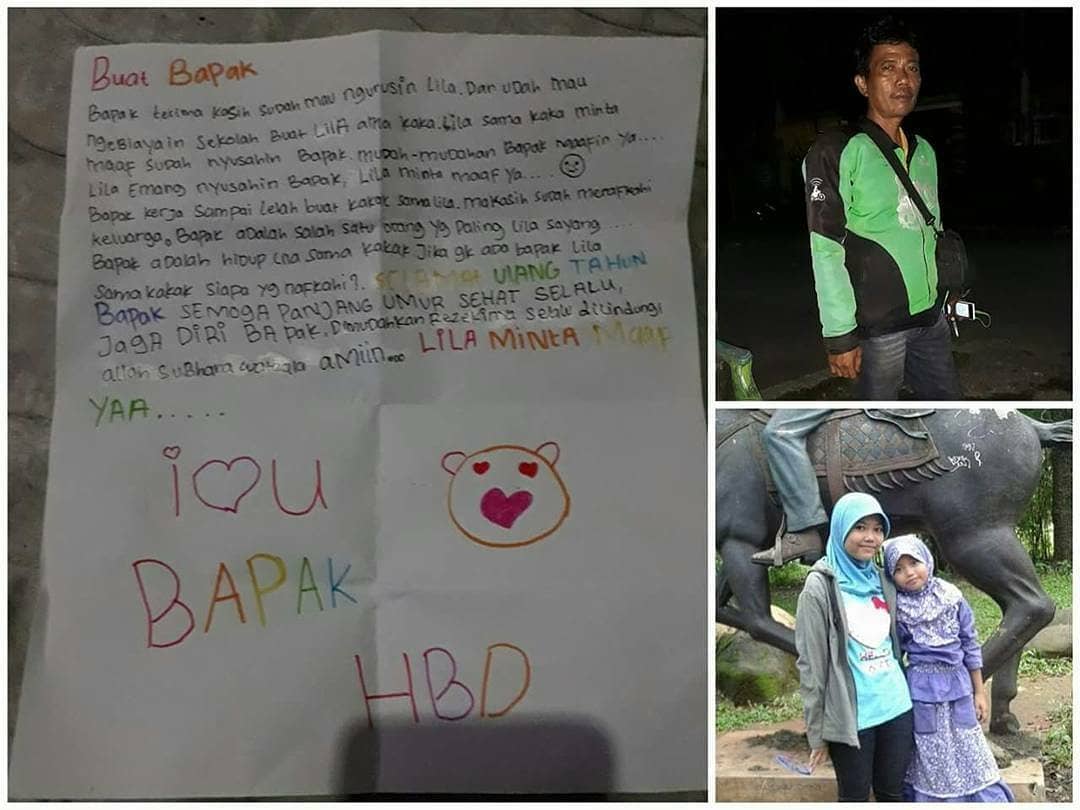 Buat Bapak
Bapak terima kasih sudah mau ngurusin Lila. Dan udah mau
ngebiayain sekolah Buat LilA ama kaka. Lila sama kaka minta
maaf sudah nyusahin Bapak. mudah-mudahan Bapak maafin ya....
Lila Emang nyusahin Bapak, Lila minta maaf ya....
Bapak kerja sampai lelah buat kakak sama lila. makasih sudah menafkahi
keluarga. Bapak adalah salah satu orang yg paling Lila sayang....
Bapak adalah hidup sama kakak Jika gk ada bapak Lila
sama kakak siapa yg nafkahi?. SELAMAT ULANG TAHUN
Bapak SEMOGA PANJANG UMUR SEHAT SELALU,
JAGA DIRI BApak. Dimudahkan selalu dilindungi
allah amiin... LILA MINTA Maaf
YAA.....
i U
BAPAK
HBD